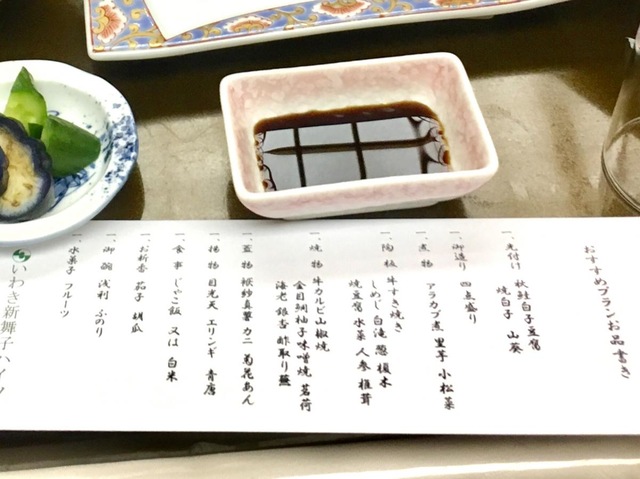 おすすめプランお品書き
一、先付け 秋鮭白子豆腐
焼白子 山葵
一、御造り 四点盛り
一、煮物 アラカブ煮 里芋 小松菜
一、陶板 牛すき焼き
しめじ 白滝 葱 榎木
焼豆腐 水菜 人参 椎茸
一、焼物 牛カルビ山椒焼
金目鯛柚子味噌焼 茗荷
海老 銀杏 酢取り蕪
一、蓋物 袱紗真薯 カニ 菊花あん
一、揚物 目光天 エリンギ 青唐
一、食事 じゃこ飯 又は 白米
一、お新香 茄子 胡瓜
一、御椀 浅利 ふのり
一、水菓子 フルーツ
いわき新舞子ハイツ